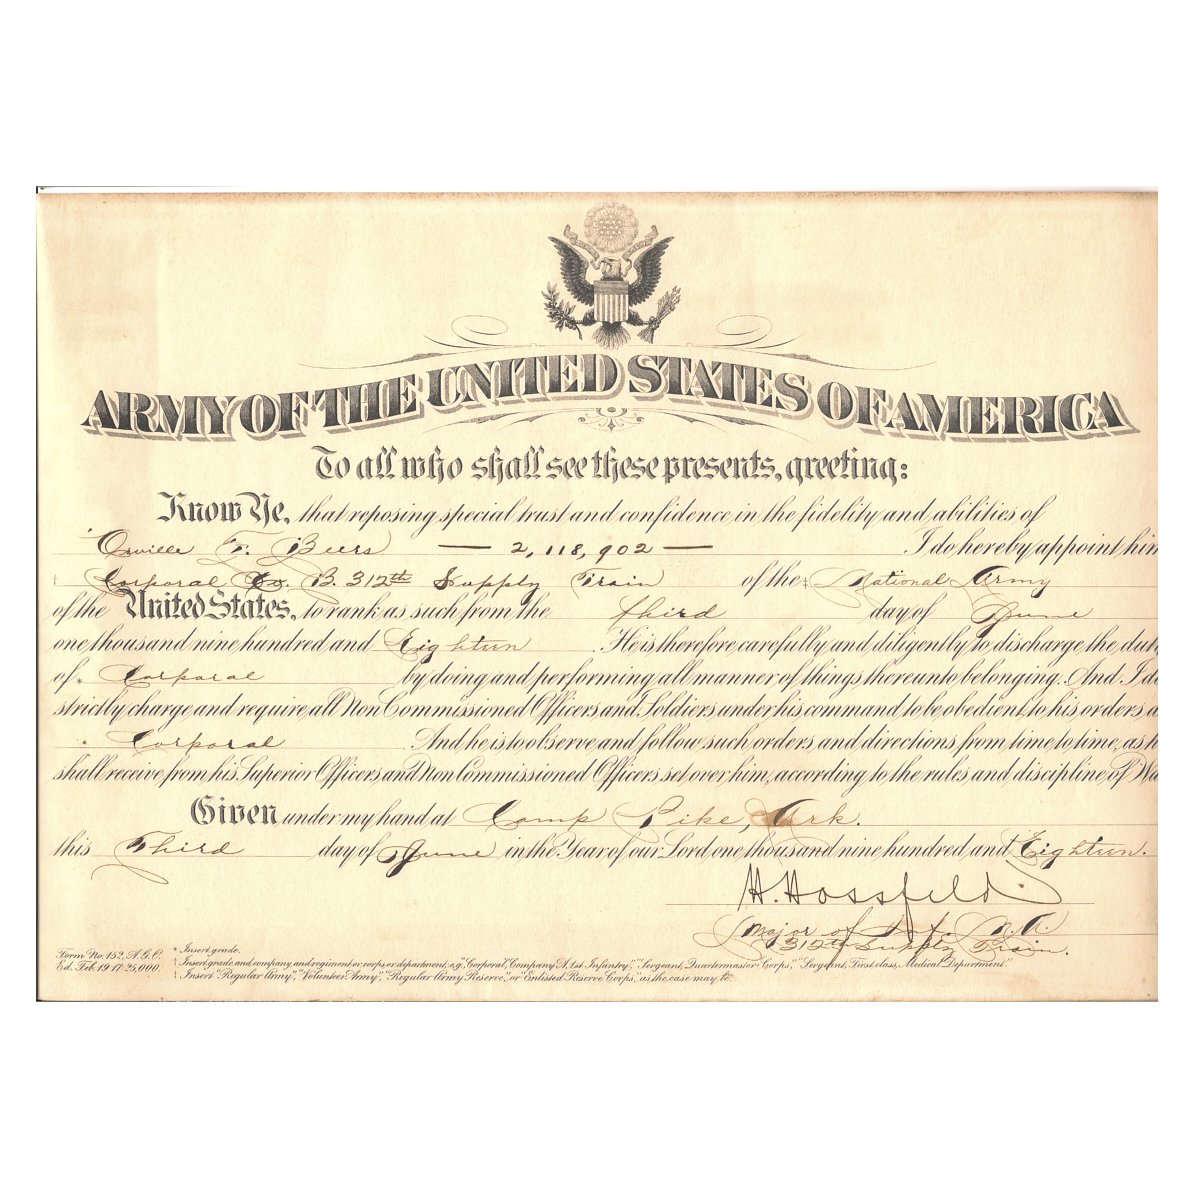 ARMY OF THE UNITED STATES OF AMERICA
To all who shall see these presents, greeting:
Know Ye, that reposing special trust and confidence in the fidelity and abilities of
Orville F. Beers — 2,118,902 — I do hereby appoint him
† Corporal Co. B. 312th Supply Train of the ‡ National Army
of the United States, to rank as such from the third day of June
one thousand nine hundred and Eighteen. He is therefore carefully and diligently to discharge the duty
of * Corporal by doing and performing all manner of things thereunto belonging. And I do
strictly charge and require all Non Commissioned Officers and Soldiers under his command to be obedient to his orders a
* Corporal And he is to observe and follow such orders and directions from time to time, as h
shall receive from his Superior Officers and Non Commissioned Officers set over him, according to the rules and discipline of Wa
Given under my hand at Camp Pike, Ark.
this Third day of June in the Year of our Lord one thousand nine hundred and Eighteen.
H. Hossfeld
Major of Inf. N.A.
312th Supply Train.
Form No. 152, A.G.O.
Ed. Feb. 19-17-25,000.
* Insert grade.
† Insert grade and company and regiment or corps or department; e.g., "Corporal, Company A, 1st Infantry," "Sergeant, Quartermaster Corps," "Sergeant, First class, Medical Department."
‡ Insert "Regular Army," "Volunteer Army," "Regular Army Reserve," or Enlisted Reserve Corps," as the case may be.